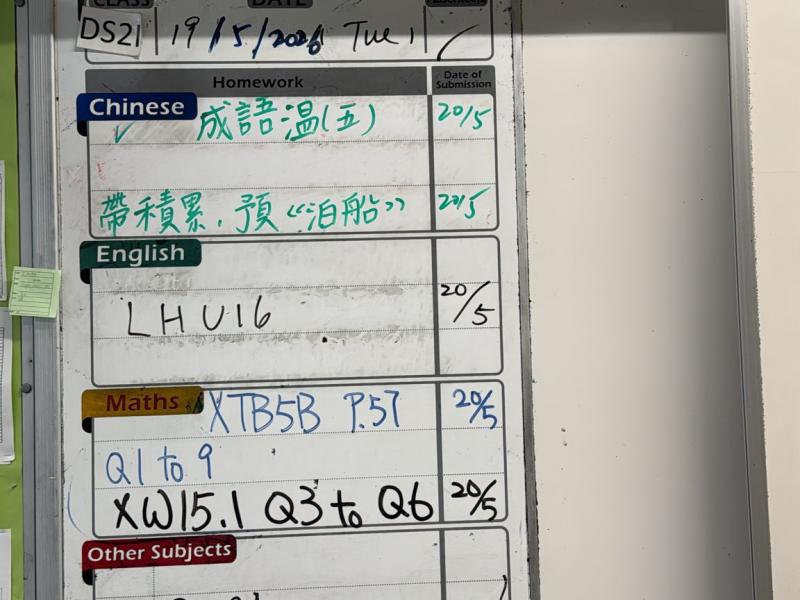 CLASS DATE
DS21 19/5/2026 Tue
Homework Date of Submission
Chinese
成語温(五) 20/5
帶積累,預《泊船》 20/5
English
LHU16 20/5
Maths XTB5B P.57 20/5
Q1 to 9
XW15.1 Q3 to Q6 20/5
Other Subjects